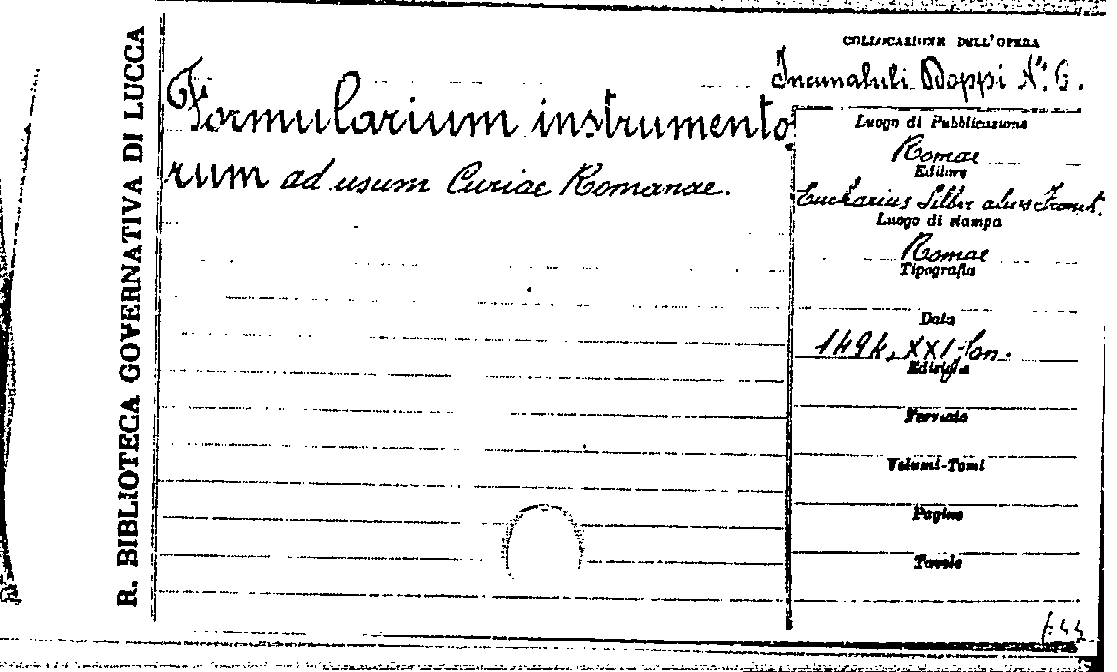 R. BIBLIOTECA GOVERNATIVA DI LUCCA
Formularium instrumento
rum ad usum Curiae Romanae.
COLLOCAZIONE DELL'OPERA
Incunabuli Doppi N.º 6.
Luogo di Pubblicazione
Romae
Editore
Eucharius Silber alias Franck.
Luogo di stampa
Romae
Tipografia
Data
1494, XXI Jan.
Edizione
Formato
Volumi-Tomi
Pagine
Tavole